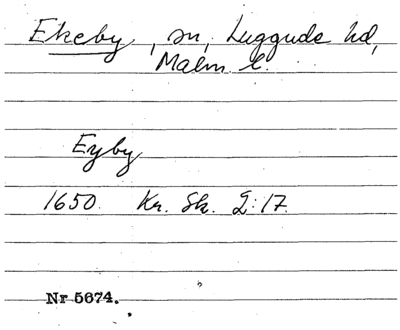 Ekeby, sn, Luggude hd,
Malm. l.
Eyby
1650. Kr. Sk. 2:17.
Nr 5674.